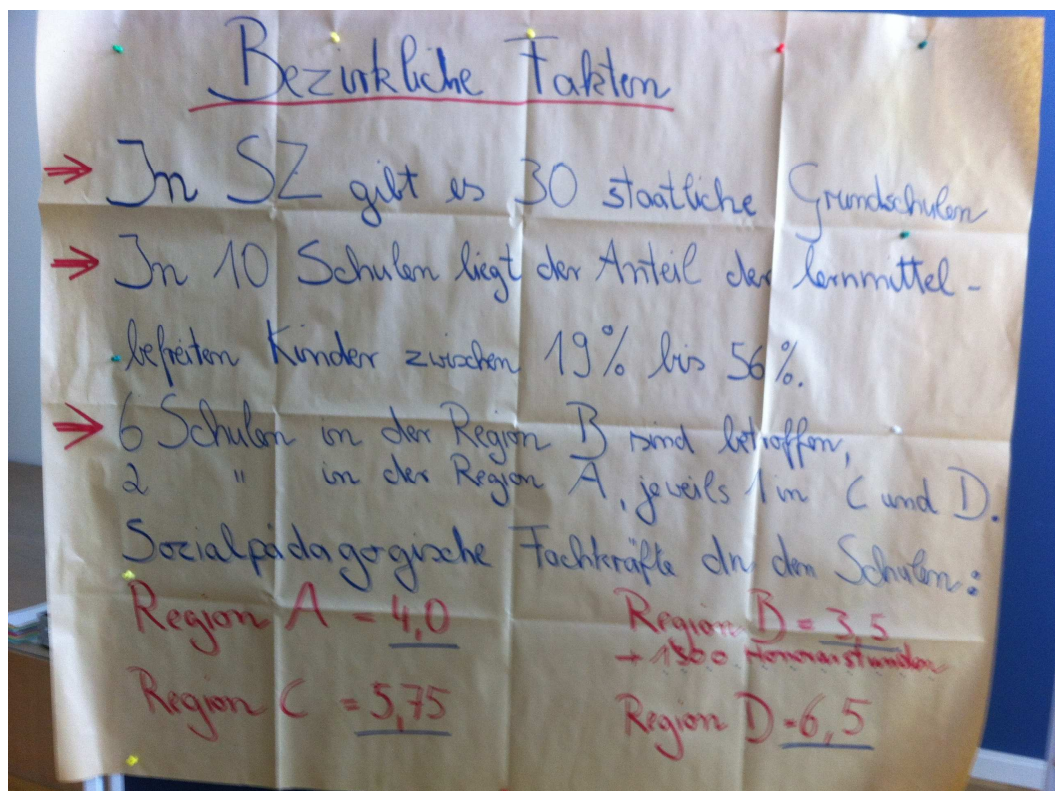 Bezirkliche Fakten
⇒ In SZ gibt es 30 staatliche Grundschulen
⇒ In 10 Schulen liegt der Anteil der lernmittel-
befreiten Kinder zwischen 19% bis 56%.
⇒ 6 Schulen in der Region B sind betroffen,
2 " in der Region A, jeweils 1 in C und D.
Sozialpädagogische Fachkräfte an den Schulen:
Region A = 4,0 Region B = 3,5
+ Honorarstunden
Region C = 5,75 Region D = 6,5